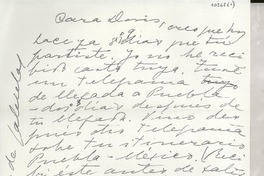 Cara Doris, creo que hoy
hace ya 9 días que tú
partiste. Yo no he reci-
bido carta tuya. Tuve
un telegrama
de llegada a Puebla
dos días después de
tu llegada. Vino des-
pués otro telegrama
sobre tu itinerario
Puebla - México. Reci-
bí este antes de salir
de